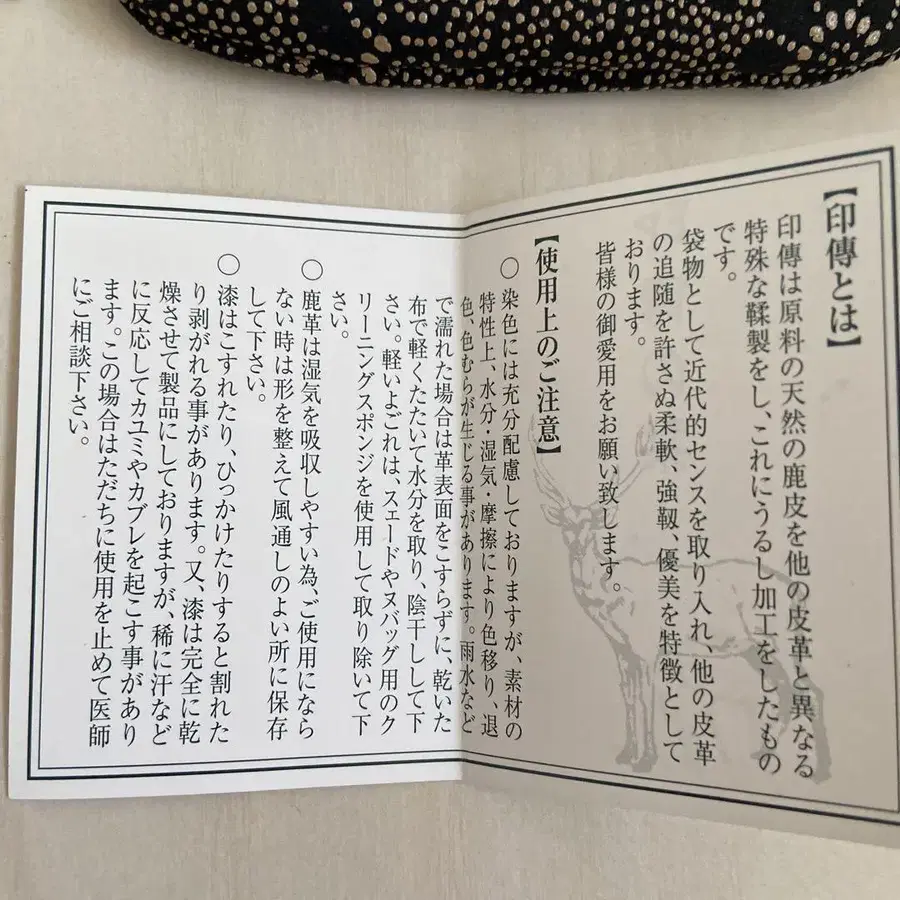 【印傳とは】
印傳は原料の天然の鹿皮を他の皮革と異なる
特殊な鞣製をし、これにうるし加工をしたもの
です。
袋物として近代的センスを取り入れ、他の皮革
の追随を許さぬ柔軟、強靱、優美を特徴として
おります。
皆様の御愛用をお願い致します。
【使用上のご注意】
○染色には充分配慮しておりますが、素材の
特性上、水分・湿気・摩擦により色移り、退
色、色むらが生じる事があります。雨水など
で濡れた場合は革表面をこすらずに、乾いた
布で軽くたたいて水分を取り、陰干しして下
さい。軽いよごれは、スェードやヌバッグ用のク
リーニングスポンジを使用して取り除いて下
さい。
○鹿革は湿気を吸収しやすい為、ご使用になら
ない時は形を整えて風通しのよい所に保存
して下さい。
○漆はこすれたり、ひっかけたりすると割れた
り剥がれる事があります。又、漆は完全に乾
燥させて製品にしておりますが、稀に汗など
に反応してカユミやカブレを起こす事があり
ます。この場合はただちに使用を止めて医師
にご相談下さい。